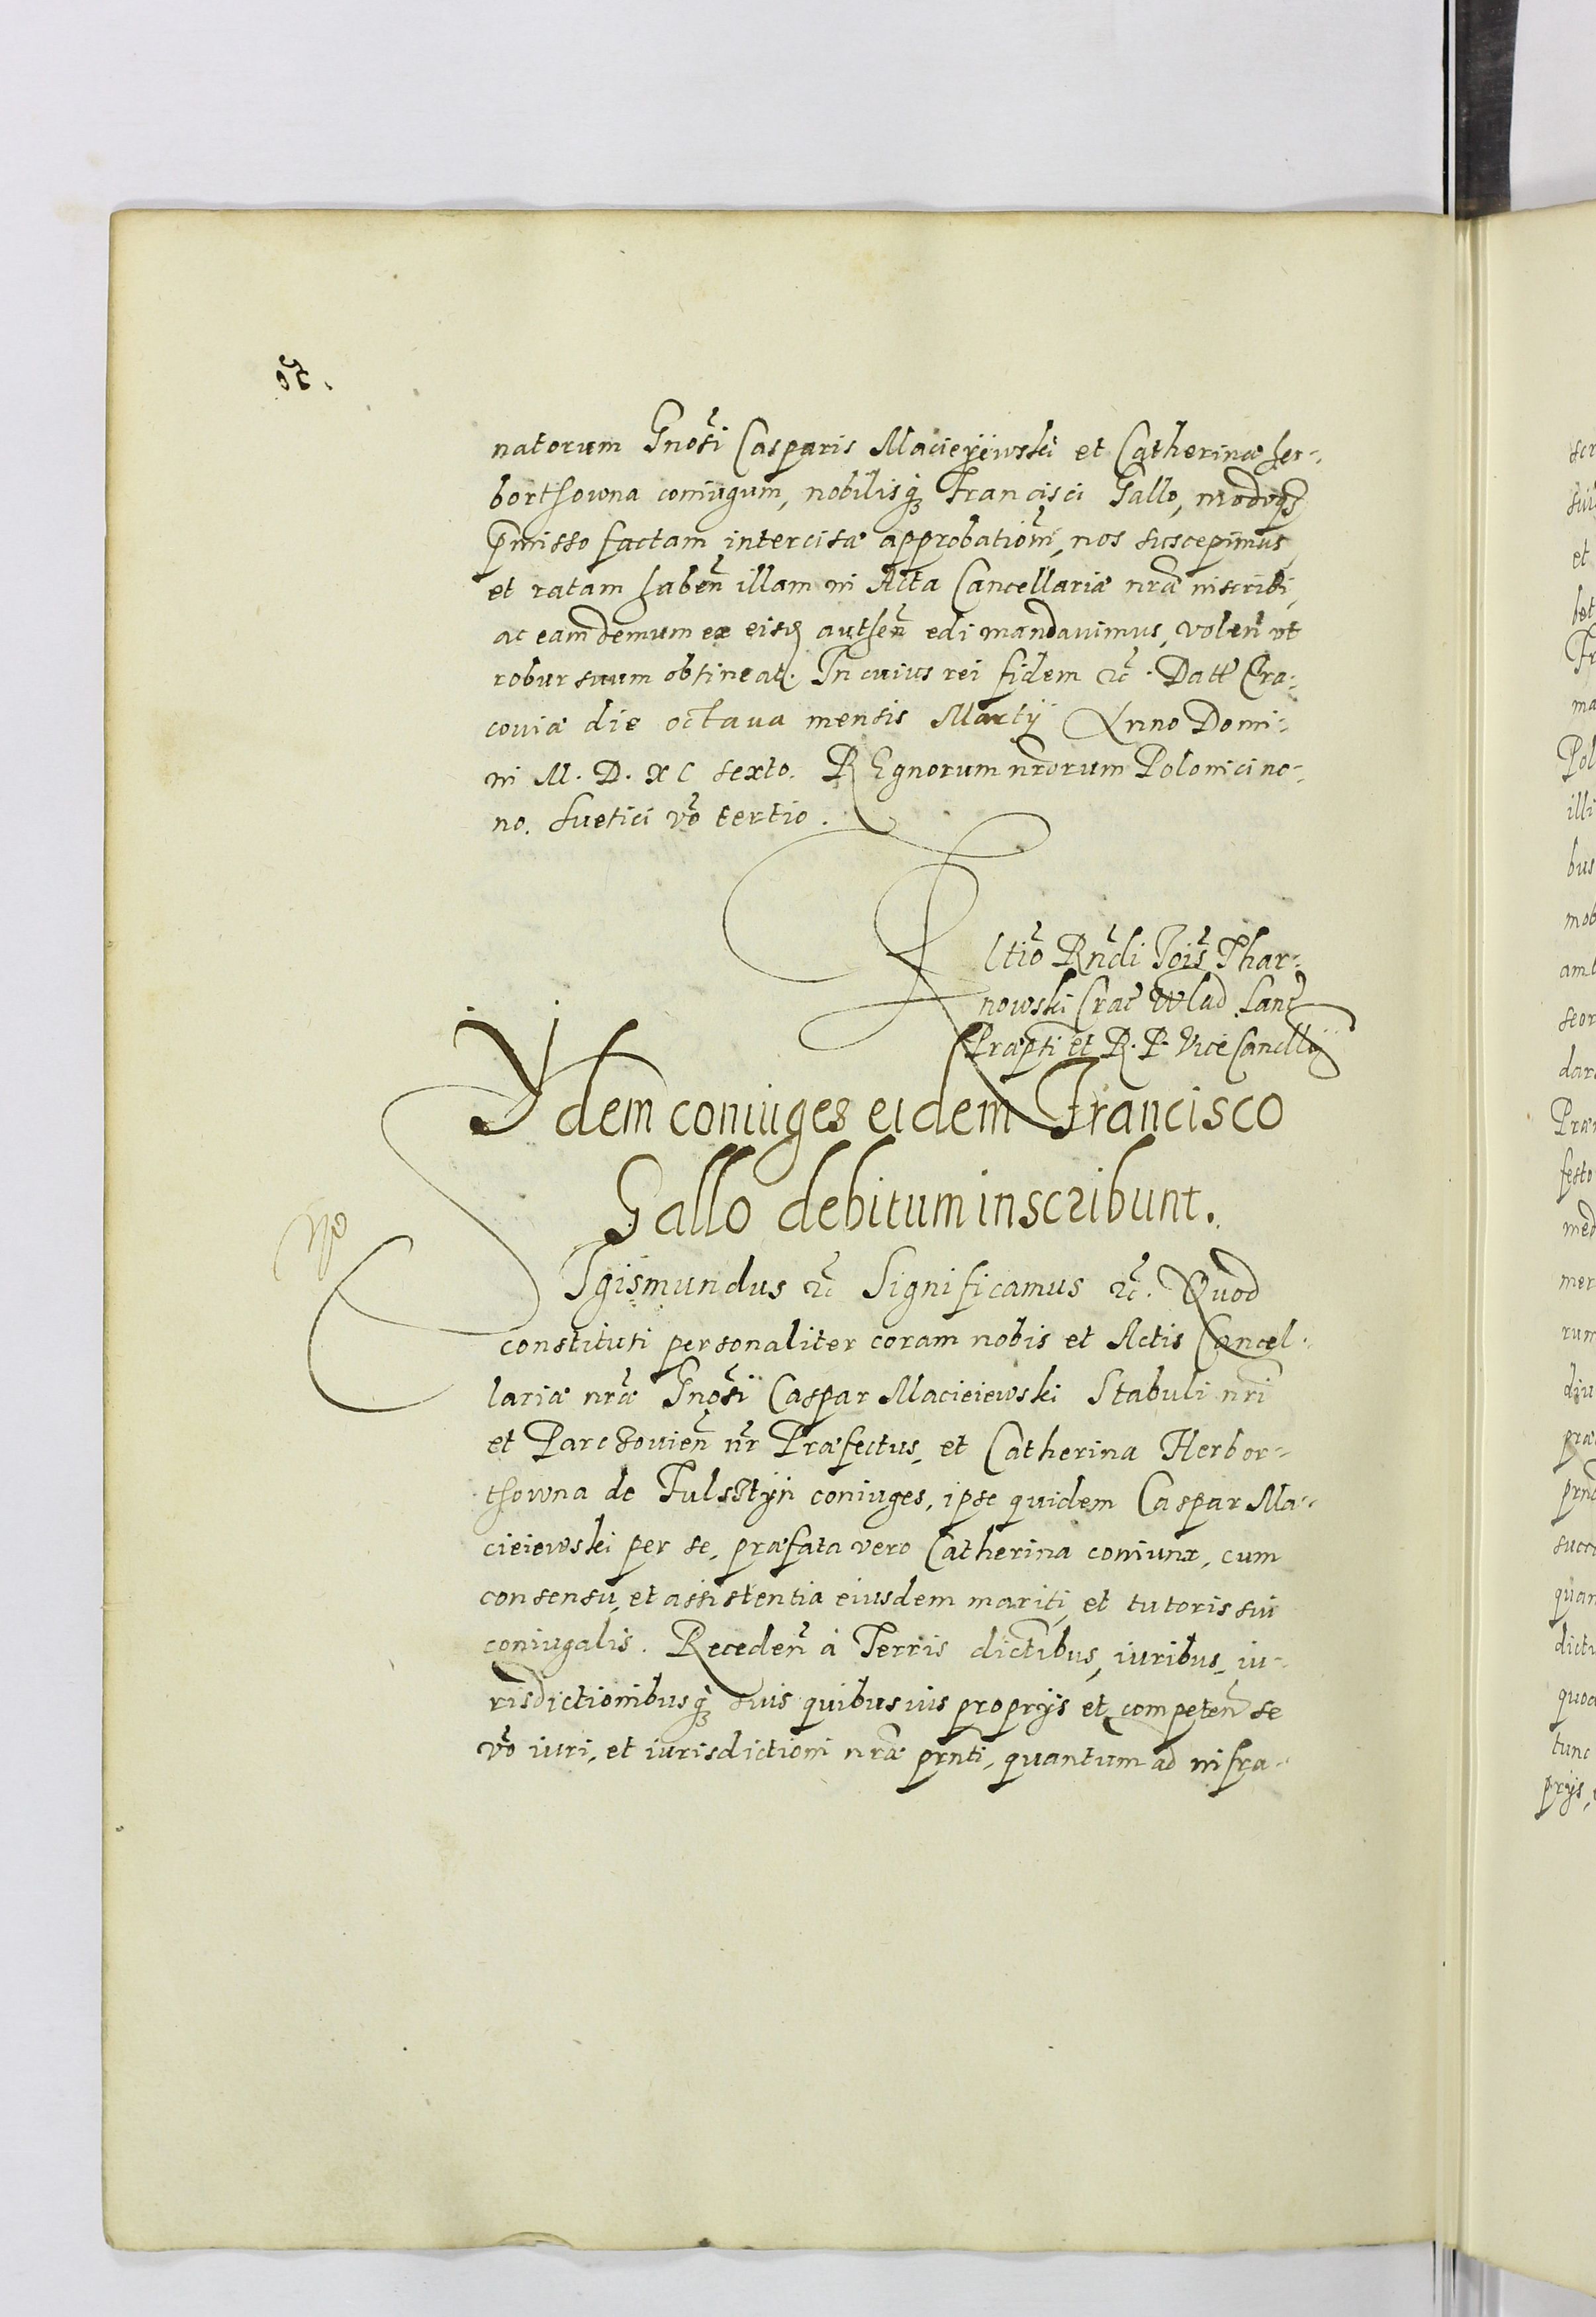 50.
natorum Gnosi Casparis Macieyiewski et Catherinæ her-
borthowna coniugum, nobilisq; Francisci Gallo, modoq;
pmisso factam intercisæ approbationi, nos suscepimus
et ratam haben illam in Acta Cancellariæ nræ inscribi,
ac eam demum ex eisd authen edi mandauimus, volen ut
robur suum obtineat. In cuius rei fidem etc. Datt Cra-
couiæ die octaua mensis Martij Anno Domi-
ni M. D. XC sexto. REgnorum nrorum Polonici no-
no. Suetici vo tertio.
Rltio Rndi Jois Thar-
nowski Crac Wlad Lanc
Præpti et R. P. Vice Cancllij
Ydem coniuges eidem Francisco
Gallo debitum inscribunt.
SIgismundus etc Significamus etc. Quod
constituti personaliter coram nobis et Actis Cancel-
lariæ nræ Gnosi Caspar Macieiewski Stabuli nri
et Parczouien nr Præfectus, et Catherina Herbor-
thowna de Fulsstÿn coniuges, ipse quidem Caspar Ma-
cieiewski per se, præfata vero Catherina coniunx, cum
consensu, et assistentia eiusdem mariti, et tutoris sui
coniugalis. Receden à Terris dictibus, iuribus, iu-
risdictionibusq; suis quibusuis proprijs et competen se
vo iuri, et iurisdictioni nræ prnti, quantum ad infra-